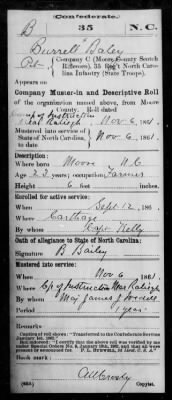 (Confederate.)
B 35 N.C.
Burrell Baley
Pvt., Company C (Moore County Scotch
Riflemen), 35 Reg't North Caro-
lina Infantry (State Troops).
Appears on
Company Muster-in and Descriptive Roll
of the organization named above, from Moore
County. Roll dated
Camp of Instruction
Near Raleigh, Nov 6, 1861.
Mustered into service of
State of North Carolina, Nov 6, 1861.
Description:
Where born Moore N.C.
Age 23 years; occupation Farmer
Height 6 feet inches.
Enrolled for active service:
When Sept 12, 186 .
Where Carthage
By whom Capt Kelly
Oath of allegiance to State of North Carolina:
Signature B Bailey
Mustered into service:
When Nov 6 1861.
Where Cp of Instruction Near Raleigh
By whom Maj James J
Period 1 year.
Remarks:
Caption of roll shows: "Transferred to the Confederate Service
January 1st, 1862."
Indorsed: "I certify that the above roll was verified by me
under Special Orders No. 8, January 15th, 1862, and that all were
present or accounted for
Book mark:
Copyist.